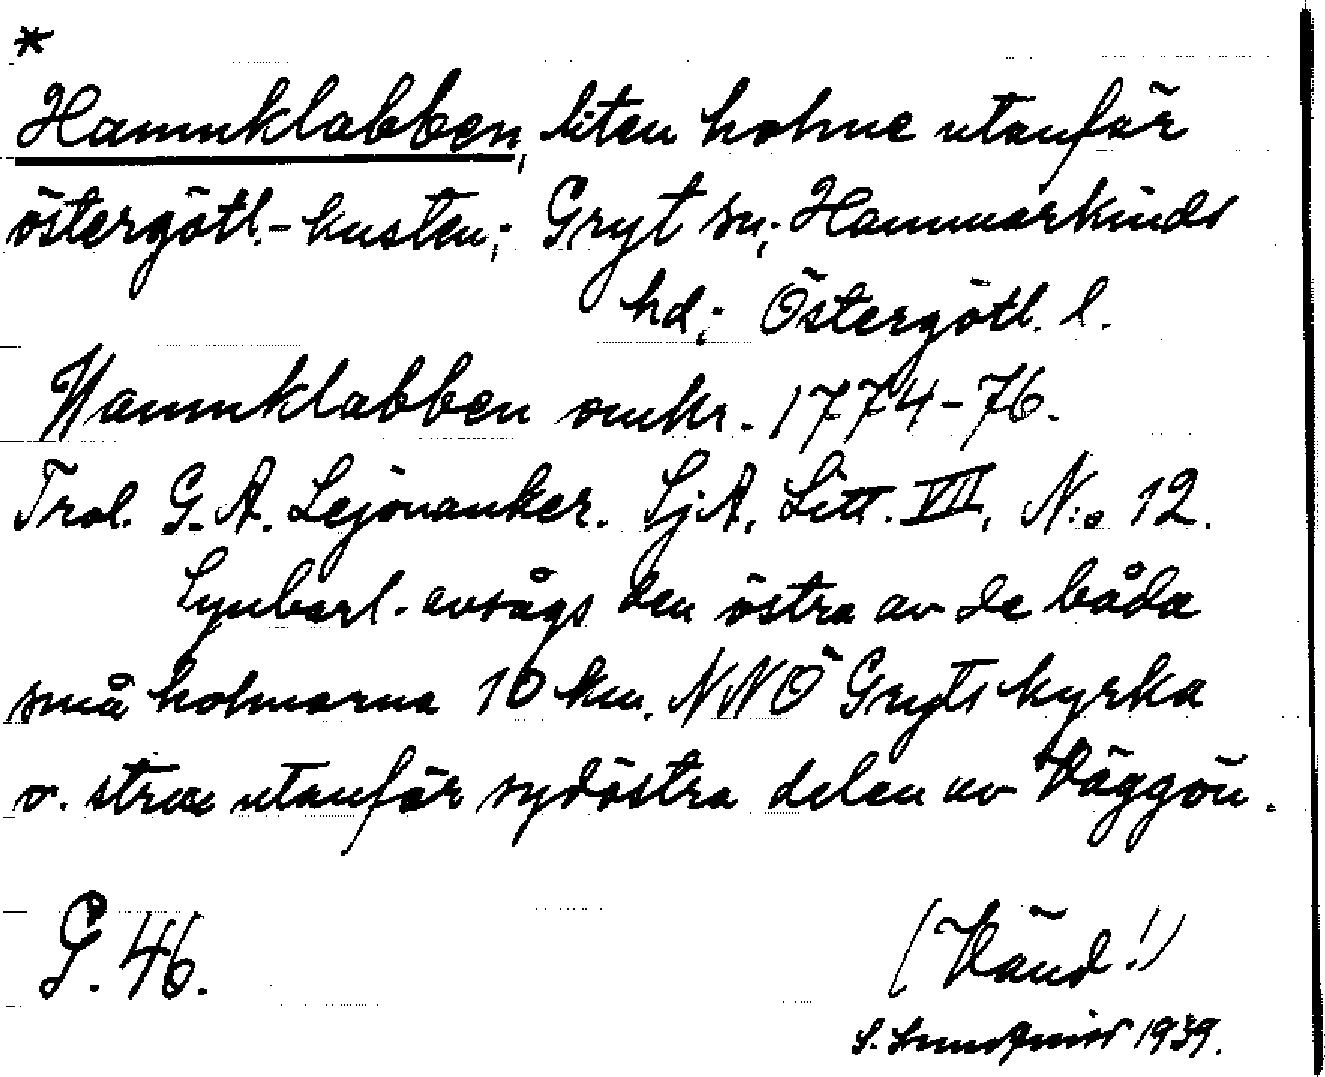 *
Hamnklabben, liten holme utanför
östergötl.-kusten; Gryt sn; Hammarkinds
hd; Östergötl. l.
Hamnklabben omkr. 1774-76.
Trol. G. A. Lejonanker. SjA, Litt. VII, N:o 12.
Synbarl. avsågs den östra av de båda
små holmarna 10 km. NNÖ Gryts kyrka
o. strax utanför sydöstra delen av Väggön.
G. 46.
(Vänd!)
S. 1939.